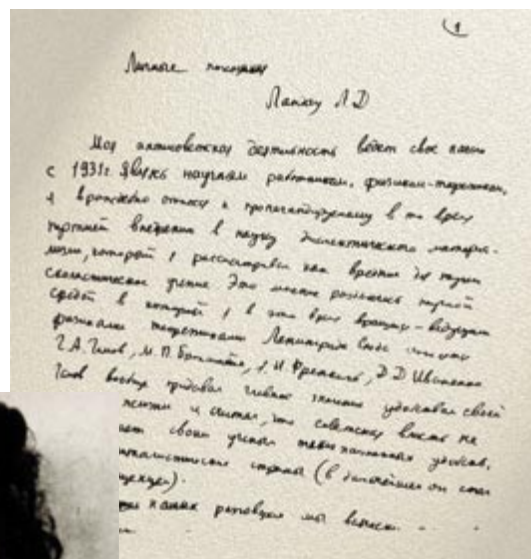 1
Личные показания
Ландау Л.Д
Моя антисоветская деятельность ведет свое начало
с 1931г. Являясь научным работником, физиком-теоретиком,
я враждебно к пропагандируемому в то время
партией внедрению в науку диалектического матери-
ализма, который я рассматривал как вредное для науки
схоластическое учение Это мнение разделялось научной
средой в которой я в это время вращался - ведущими
физиками теоретиками Ленинграда
Г.А. Гамов, М.П. Я.И. Френкель, Д.Д Иваненко
Гамов вообще придавал главное значение удобствам своей
и считал, что советская власть не
своим ученым таких удобств,
страны (в дальнейшем он стал
разговоров мы